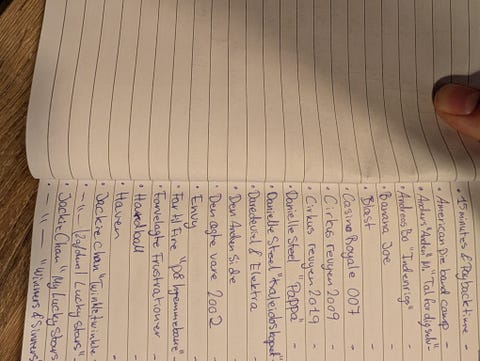 • 15 minutes & Paybacktime -
• American Pie band camp -
• Anders "Anden" M. Tal for dig selv! -
• Andreas Bo "Indenrigs" -
• Banana Joe -
• Blast -
• Casino Royale 007 -
• Circus revyen 2009 -
• Cirkus revyen 2019 -
• Danielle Steel "Pappa" -
• Danielle Steel "Kaleidoskopet" -
• Daredevil & Elektra -
• Den Anden Side
• Den ægte vare 2002 -
• Envy -
• Far til Fire "på hjemmebane" -
• Forvelagte Frustrationer -
• Hardball -
• Haven -
• Jackie Chan "Twinkle twinkle
• - 11 - Lucky stars"
• Jackie Chan "My Lucky Stars
• - 11 - "Winners & Sinners